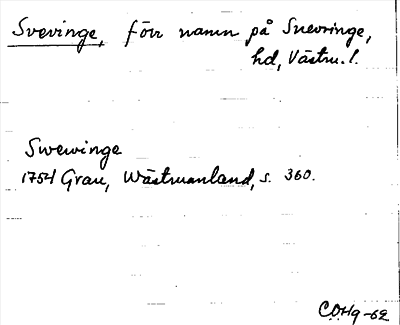 Svevinge, förr namn på Snevringe,
hd, Västm. l.
Swewinge
1754 Grau, Wästmanland, s. 360.
C.O.Hg -62